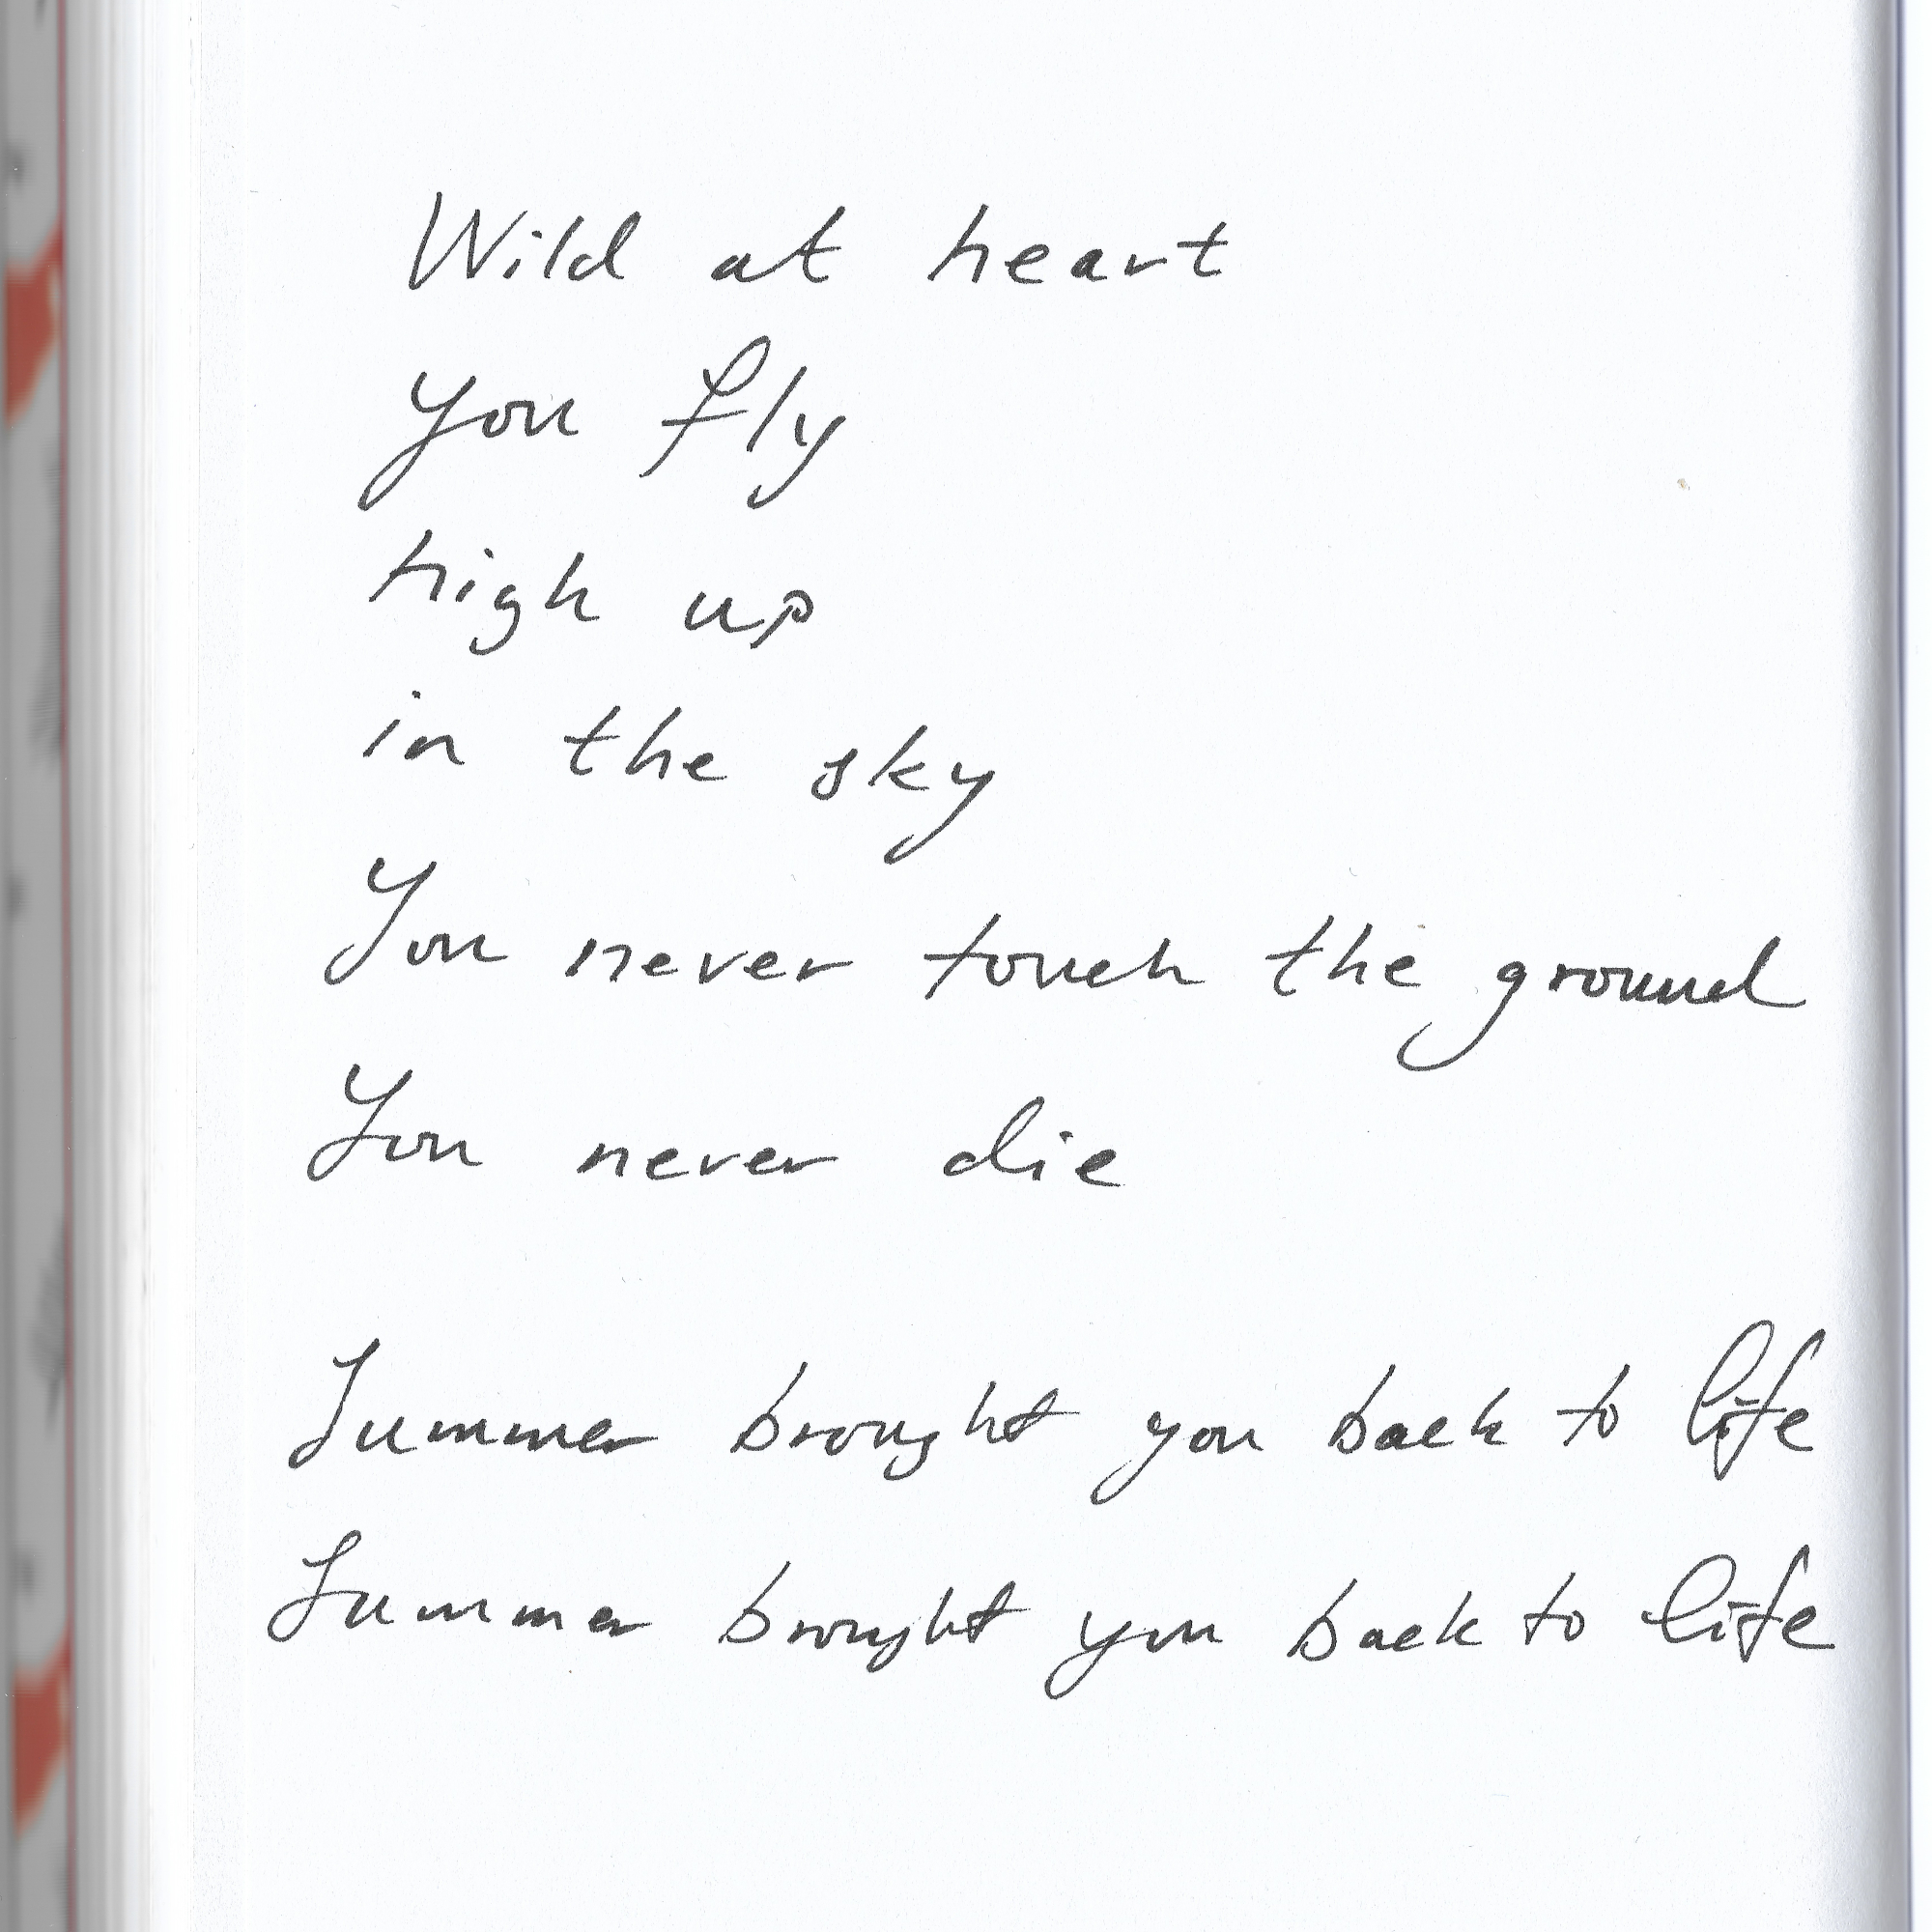 Wild at heart
you fly
high up
in the sky
You never touch the ground
You never die
Summer brought you back to life
Summer brought you back to life